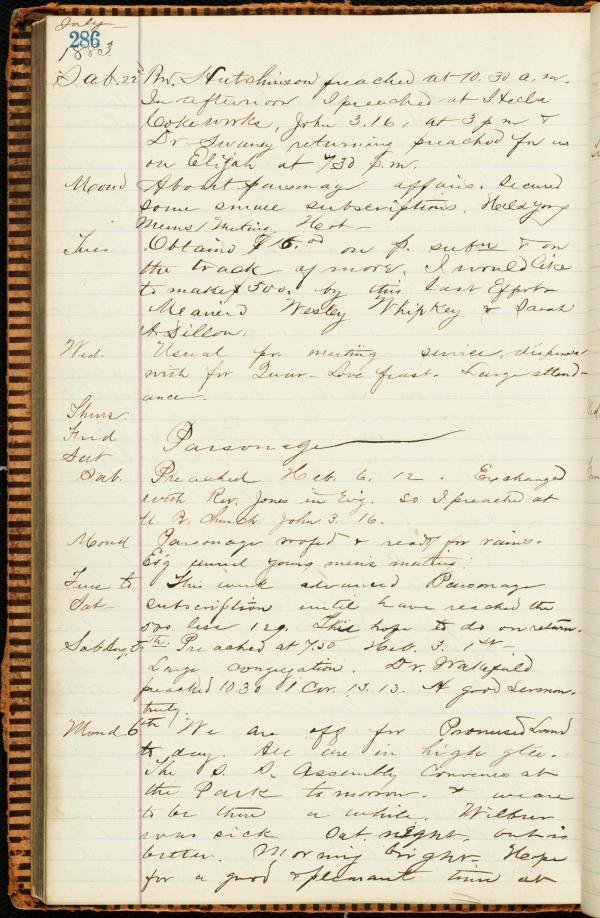 July
286
1883.
Sab. 22d Bro. Hutchinson preached at 10.30 a.m.
In afternoon I preached at Hecla
Coke works, John 3.16, at 3 p m &
Dr. Swaney returning preached for us
on Elijah at 7.30 p.m.
Mond About parsonag affairs. Secured
some small subscriptions. Held yong
Mens Meeting. Hot—
Tues Obtaind $ on p. subn & on
the track of more. I would like
to make $500. by this last Effort
Maried Wesley Whipkey & Sarah
A Dillon.
Wed. Usual pr. meeting service dispensd
with for Quar- Love feast. Large attend-
ance.
Thurs.
Frid Parsonage
Sat
Sab. Preached Heb. 6. 12. Exchanged
with Rev. Jones in Evg. so I preached at
U. B. Church John 3. 16.
Mond Parsonage roofed & ready for rains.
Evg usual young men's meeting.
Tues to This week advanced Parsonage
Sat— subscription until have reached the
500 less 129. This hope to do on return.
Sab Aug. 5th. Preached at 7.30 Heb. 3. 1st—
Large congregation. Dr. Wakefield
preached 10 30 1 Cor. 13. 13. A good Sermon
truly.
Mond 6th We are off for Promised Land
to day. All are in high glee.
The S. S. Assembly Convenes at
the Park to morrow. & we are
to be there a while. Wilbur
was sick Sat. night, but is
better. Morning bright. Hope
for a good & pleasant time at